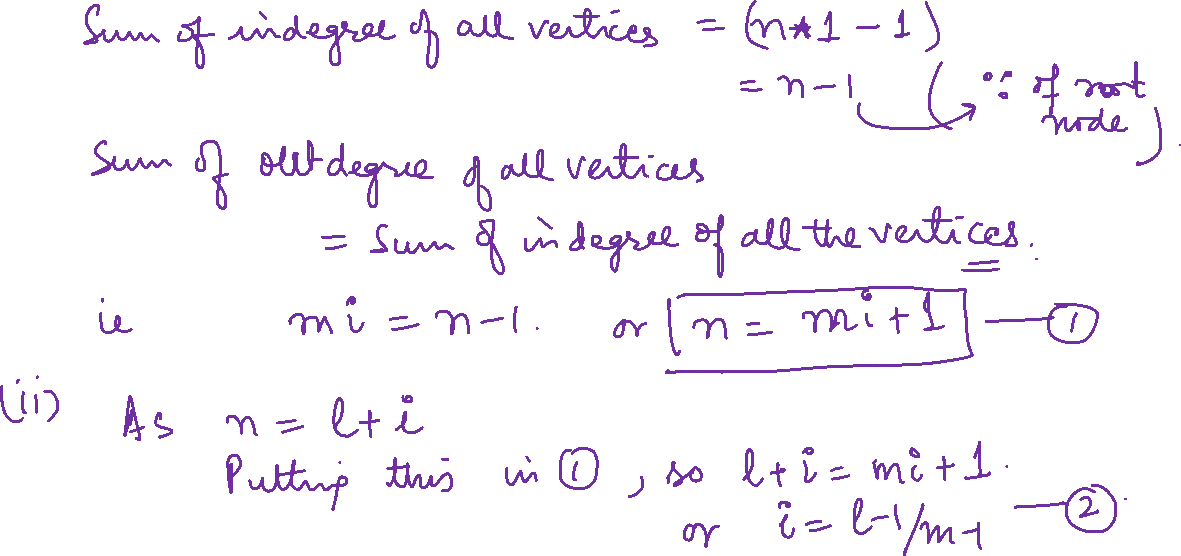 Sum of indegree of all vertices = (n*1 - 1)
= n-1 (∵ of root node).
Sum of outdegree of all vertices
= Sum of indegree of all the vertices.
ie mi = n-1. or n = mi+1 — ①
(ii) As n = l+i
Putting this in ①, so l+i = mi+1.
or i = l-1/m-1 — ②.